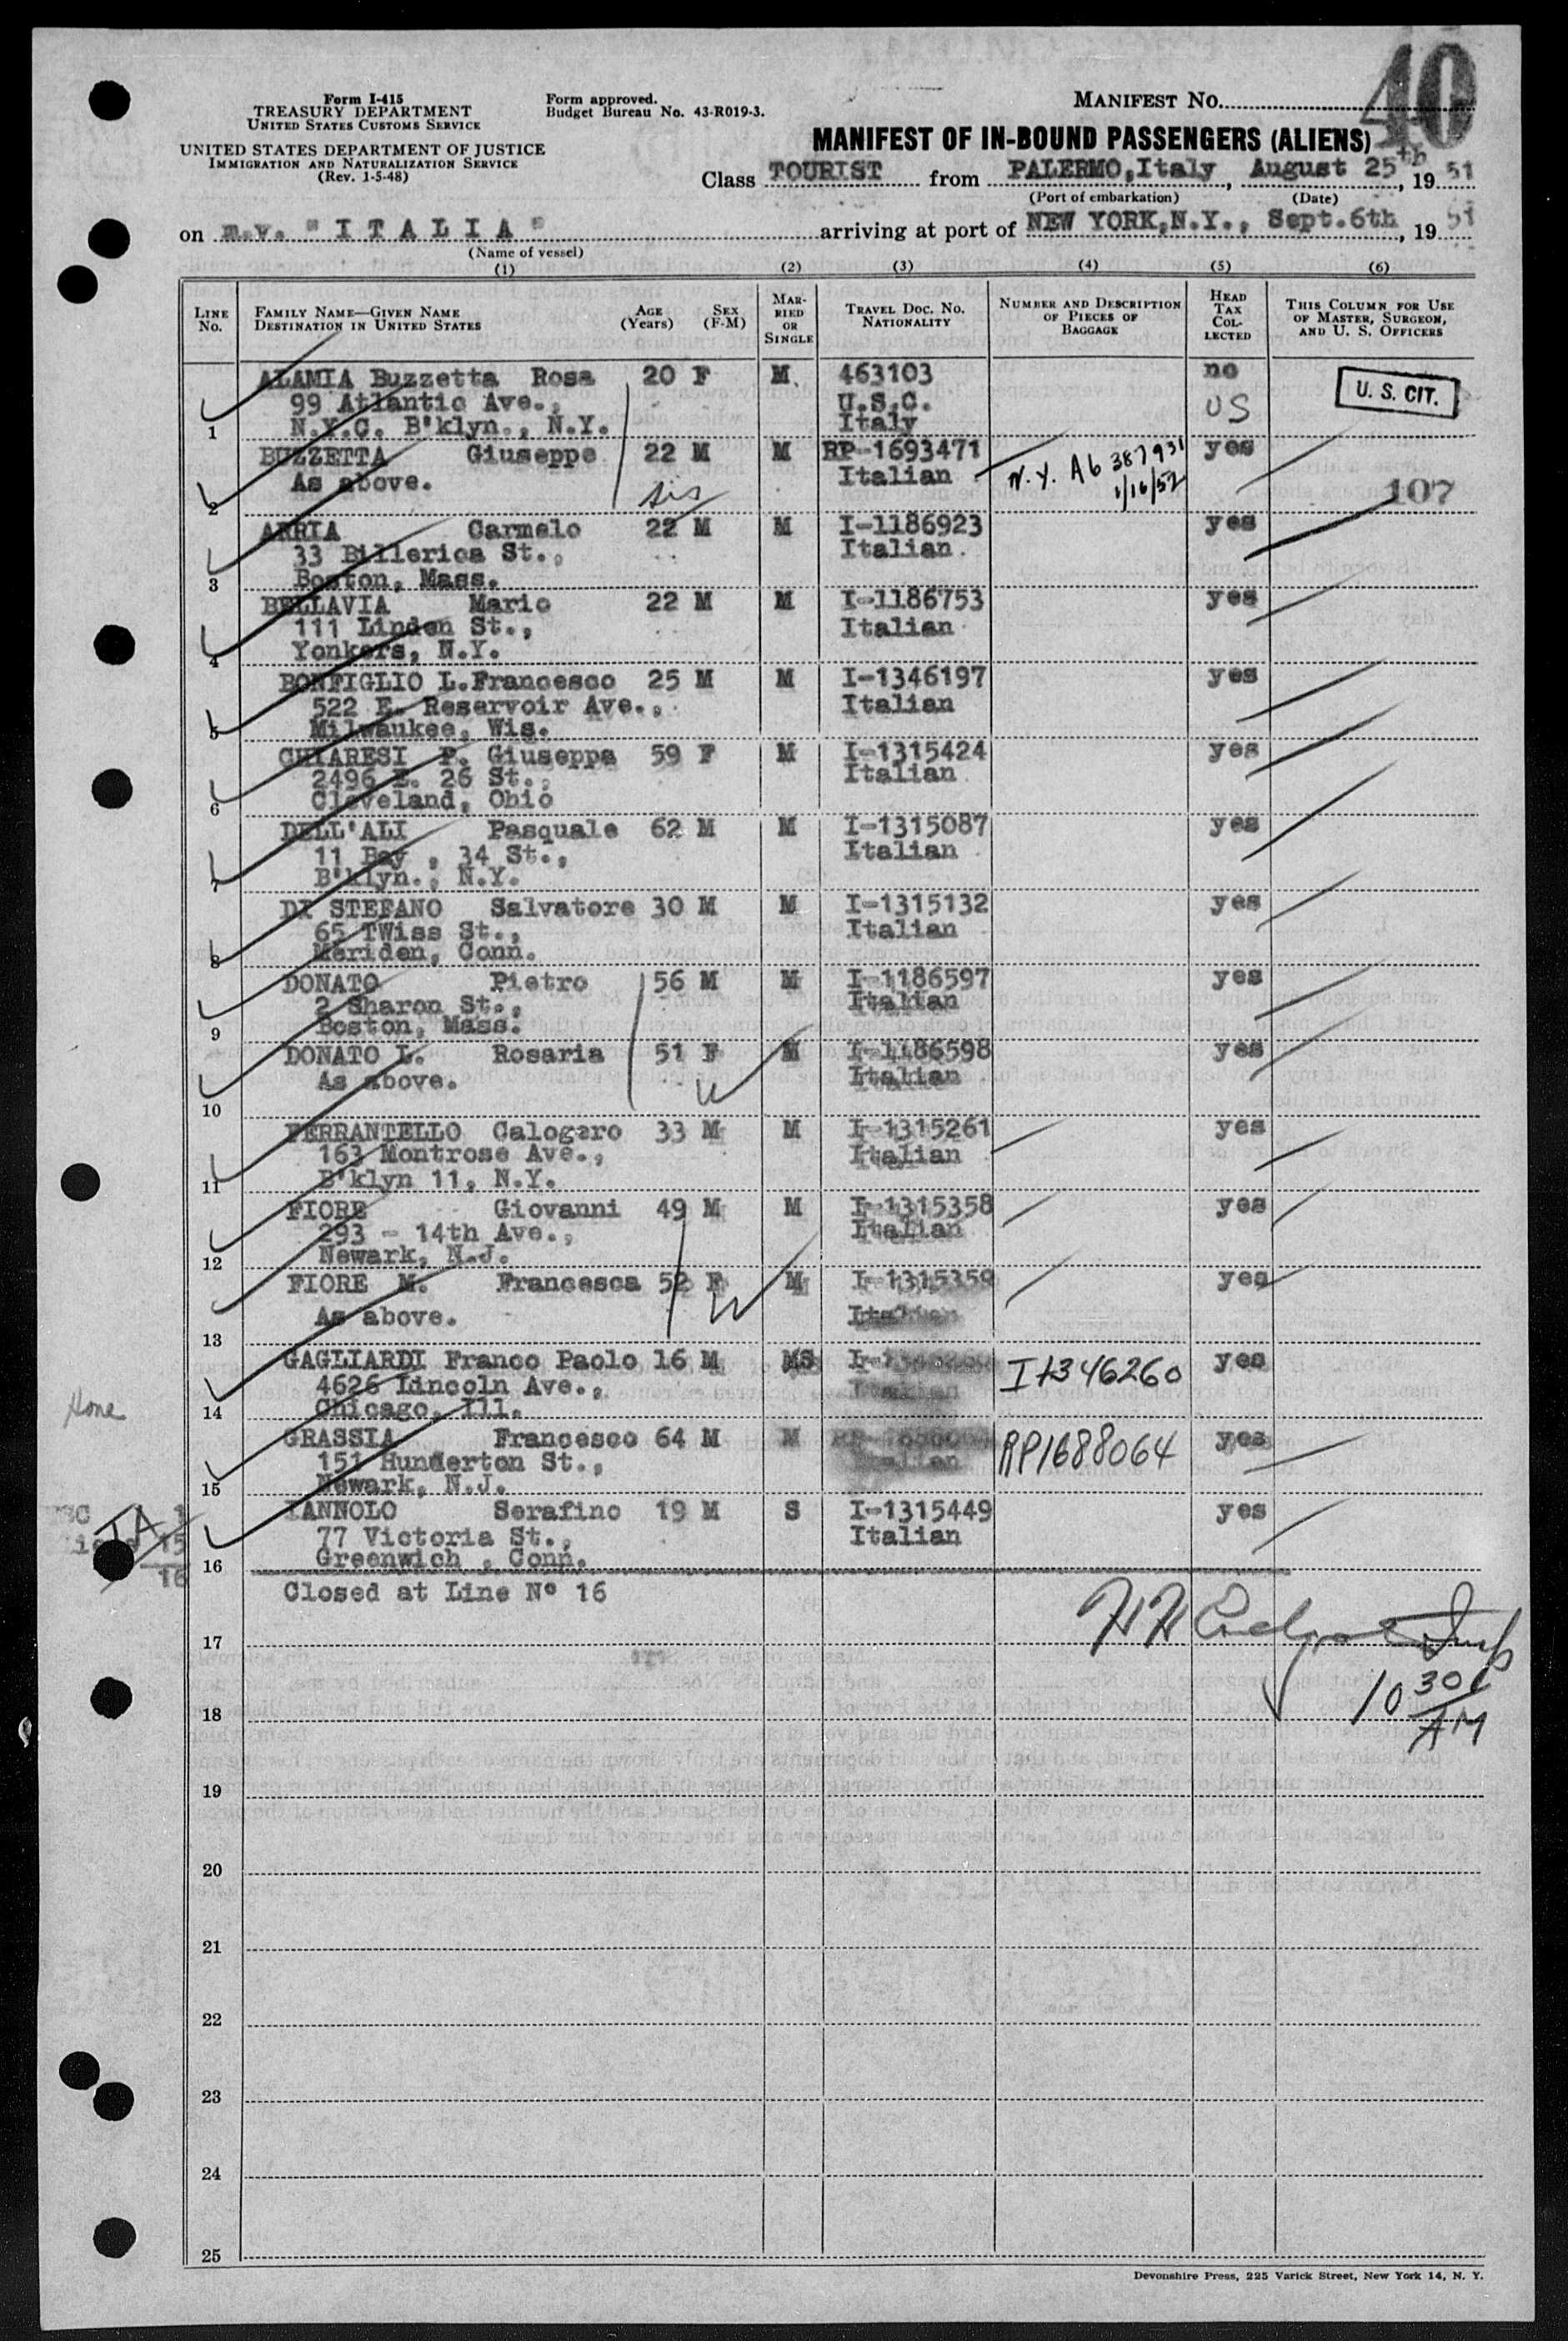 40
Form I-415
TREASURY DEPARTMENT
UNITED STATES CUSTOMS SERVICE
UNITED STATES DEPARTMENT OF JUSTICE
IMMIGRATION AND NATURALIZATION SERVICE
(Rev. 1-5-48)
Form approved.
Budget Bureau No. 43-R019-3.
MANIFEST NO.
MANIFEST OF IN-BOUND PASSENGERS (ALIENS)
Class TOURIST from PALERMO,Italy, August 25th, 19 51
(Port of embarkation) (Date)
on m.v. "I T A L I A" arriving at port of NEW YORK,N.Y., Sept.6th, 19 51
(Name of vessel)
(1) (2) (3) (4) (5) (6)
LINE No. FAMILY NAME—GIVEN NAME DESTINATION IN UNITED STATES AGE (Years) SEX (F-M) MARRIED OR SINGLE TRAVEL DOC. NO. NATIONALITY NUMBER AND DESCRIPTION OF PIECES OF BAGGAGE HEAD TAX COLLECTED THIS COLUMN FOR USE OF MASTER, SURGEON, AND U. S. OFFICERS
ALAMIA Buzzetta Rosa 20 F M 463103 no U. S. CIT.
99 Atlantic Ave., U.S.C. US
1 N.Y.C. B'klyn., N.Y. Italy
BUZZETTA Giuseppe 22 M M RP-1693471 N.Y. A6 387931 yes
As above. Italian 1/16/52 107
2
ARRIA Carmelo 22 M M I-1186923 yes
33 Billerica St., Italian
3 Boston, Mass.
BELLAVIA Mario 22 M M I-1186753 yes
111 Linden St., Italian
4 Yonkers, N.Y.
BONFIGLIO L.Francesco 25 M M I-1346197 yes
522 E. Reservoir Ave., Italian
5 Milwaukee, Wis.
CHIARESI P. Giuseppa 59 F M I-1315424 yes
2496 E. 26 St., Italian
6 Cleveland, Ohio
DELL'ALI Pasquale 62 M M I-1315087 yes
11 Bay , 34 St., Italian
7 B'klyn., N.Y.
DI STEFANO Salvatore 30 M M I-1315132 yes
65 TWiss St., Italian
8 Meriden, Conn.
DONATO Pietro 56 M M I-1186597 yes
2 Sharon St., Italian
9 Boston, Mass.
DONATO L. Rosaria 51 F M I-1186598 yes
As above. W Italian
10
FERRANTELLO Calogero 33 M M I-1315261 yes
163 Montrose Ave., Italian
11 B'klyn 11, N.Y.
FIORE Giovanni 49 M M I-1315358 yes
293 - 14th Ave., Italian
12 Newark, N.J.
FIORE M. Francesca 52 F M I-1315359 yes
As above. W Italian
13
GAGLIARDI Franco Paolo 16 M S I1346260 yes
4626 Lincoln Ave., Italian
14 Chicago, Ill.
GRASSIA Francesco 64 M M RP1688064 yes
151 Hunderton St., Italian
15 Newark, N.J.
IANNOLO Serafino 19 M S I-1315449 yes
77 Victoria St., Italian
16 Greenwich , Conn.
Closed at Line Nº 16
17
10 30
AM
18
19
20
21
22
23
24
25
Devonshire Press, 225 Varick Street, New York 14, N. Y.